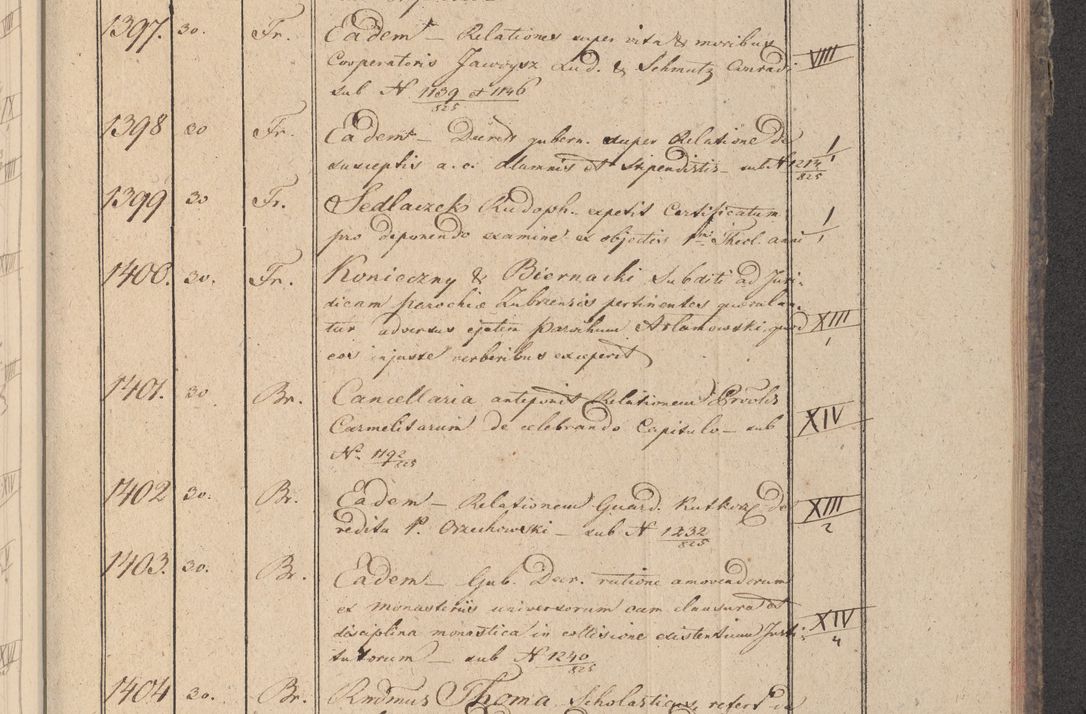 1397. 30. Fr. Eadem – Relationes super vita & moribus
Cooperatoris Jawoysz Lud. & Schmutz Conradi VIII
sub N 1139 et 1146/825
1398 30 Fr. Eadem – Decret. gubern. super Relatione de
susceptis a. c. Alumnis et Stipendistis – sub N 1214/825 1/1
1399 30 Fr. Sedlaczek Rudoph. expetit Certificatum
pro deponendo examine ex objectis 1mi Theol. anni 1/1
1400. 30. Fr. Konieczny & Biernacki Subditi ad Juri-
dicam parochiæ Zubrzensis pertinentes querulan-
tur adversus ejatem parochum Adamowski, quod XIII/1
eos injuste verberibus exceperit
1401. 30 Br. Cancellaria anteponit Relationem Provlis
Carmelitarum de celebrando Capitulo – sub XIV
No. 1192/825
1402 30. Br. Eadem – Relationem Guard. Kutkorz de
reditu P. Orzechowski – sub N 1232/825 XIII/2
1403. 30. Br. Eadem – Gub. Decr. ratione amovendorum
ex monasteriis universorum cum clausura et
disciplina monastica in collisione existentium Insti- XIV/4
tutorum – sub N 1240/825
1404 30. Br. Rndmus Thoma Scholasticus, refert de